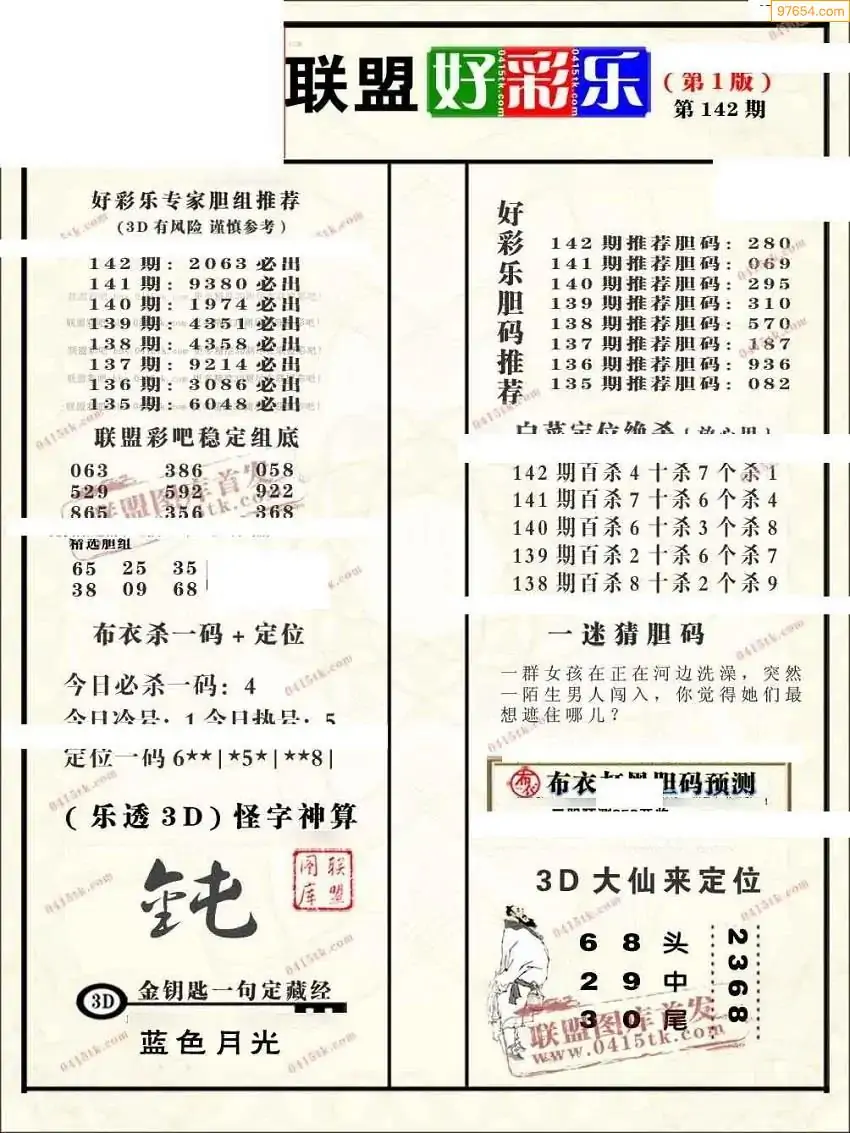 97654.com
联盟好彩乐
0415tk.com
0415tk.com
(第1版)
第142期
好彩乐专家胆组推荐
(3D有风险 谨慎参考)
142期: 2063必出
141期: 9380必出
140期: 1974必出
139期: 4351必出
138期: 4358必出
137期: 9214必出
136期: 3086必出
135期: 6048必出
联盟彩吧稳定组底
063 386 058
529 592 922
865 356 368
精选胆组
65 25 35
38 09 68
布衣杀一码+定位
今日必杀一码: 4
今日冷号: 1 今日热号: 5
定位一码6**|*5*|**8|
(乐透3D)怪字神算
钝
联盟图库
3D 金钥匙一句定藏经
蓝色月光
好彩乐胆码推荐
142期推荐胆码: 280
141期推荐胆码: 069
140期推荐胆码: 295
139期推荐胆码: 310
138期推荐胆码: 570
137期推荐胆码: 187
136期推荐胆码: 936
135期推荐胆码: 082
142期百杀4十杀7个杀1
141期百杀7十杀6个杀4
140期百杀6十杀3个杀8
139期百杀2十杀6个杀7
138期百杀8十杀2个杀9
一迷猜胆码
一群女孩在正在河边洗澡，突然
一陌生男人闯入，你觉得她们最
想遮住哪儿？
布衣
布衣 胆码预测
3D大仙来定位
6 8 头
2 9 中
3 0 尾
2368
联盟图库首发
www.0415tk.com